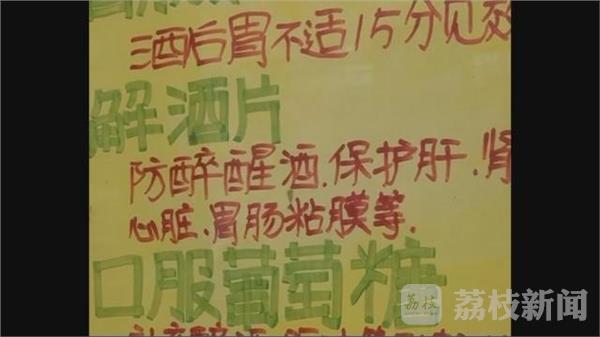 酒后胃不适15分见效
解酒片
防醉醒酒.保护肝.肾
心脏.胃肠粘膜等.
口服葡萄糖
荔枝
荔枝新闻